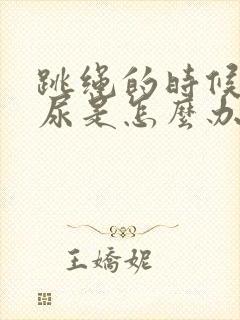 跳绳的時候
尿是怎麼办
王嬌妮